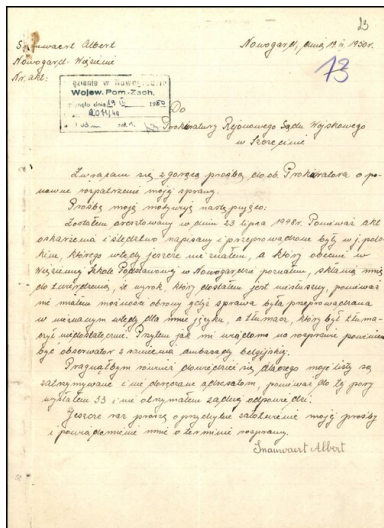 23
Albert Nowogard, dnia 19.II.1950r.
Nowogard-Więzienie
Nr. akt: 73
w Nowogardzie
Wojew. Pom.-Zach.
dnia 1950
Do
Prokuratury Rejonowego Sądu Wojskowego
w Szczecinie
Zwracam się z gorącą prośbą do ob. Prokuratora o po-
nowne rozpatrzenie mojej sprawy.
Prośbę moją motywuję następująco:
Zostałem aresztowany w dniu 23 lipca 1948r. Ponieważ akt
oskarżenia i śledztwo napisany i przeprowadzone były w j. pols-
kim, którego wtedy jeszcze nie znałem, a który obecnie w
Więziennej Szkole Podstawowej w Nowogardzie poznałem, skłania mnię
do twierdzenia, że wyrok, który dostałem jest niesłuszny, ponieważ
nie miałem możności obrony gdyż sprawa była przeprowadzana
w nieznanym wtedy dla mnie języku, a tłumacz, który był tłuma-
czył niedostatecznie. Przytem jak mi wiadomo na rozprawie powinien
być obserwator z ramienia ambasady belgijskiej.
Pragnąłbym również dowiedzieć się, dlaczego moje listy są
zatrzymywane i nie doręczane adresatom, ponieważ do tej pory
wysłałem 33 i nie otrzymałem żadnej odpowiedzi.
Jeszcze raz proszę o przychylne załatwienie mojej prośby
i powiadomienie mnie o terminie rozprawy.
Albert